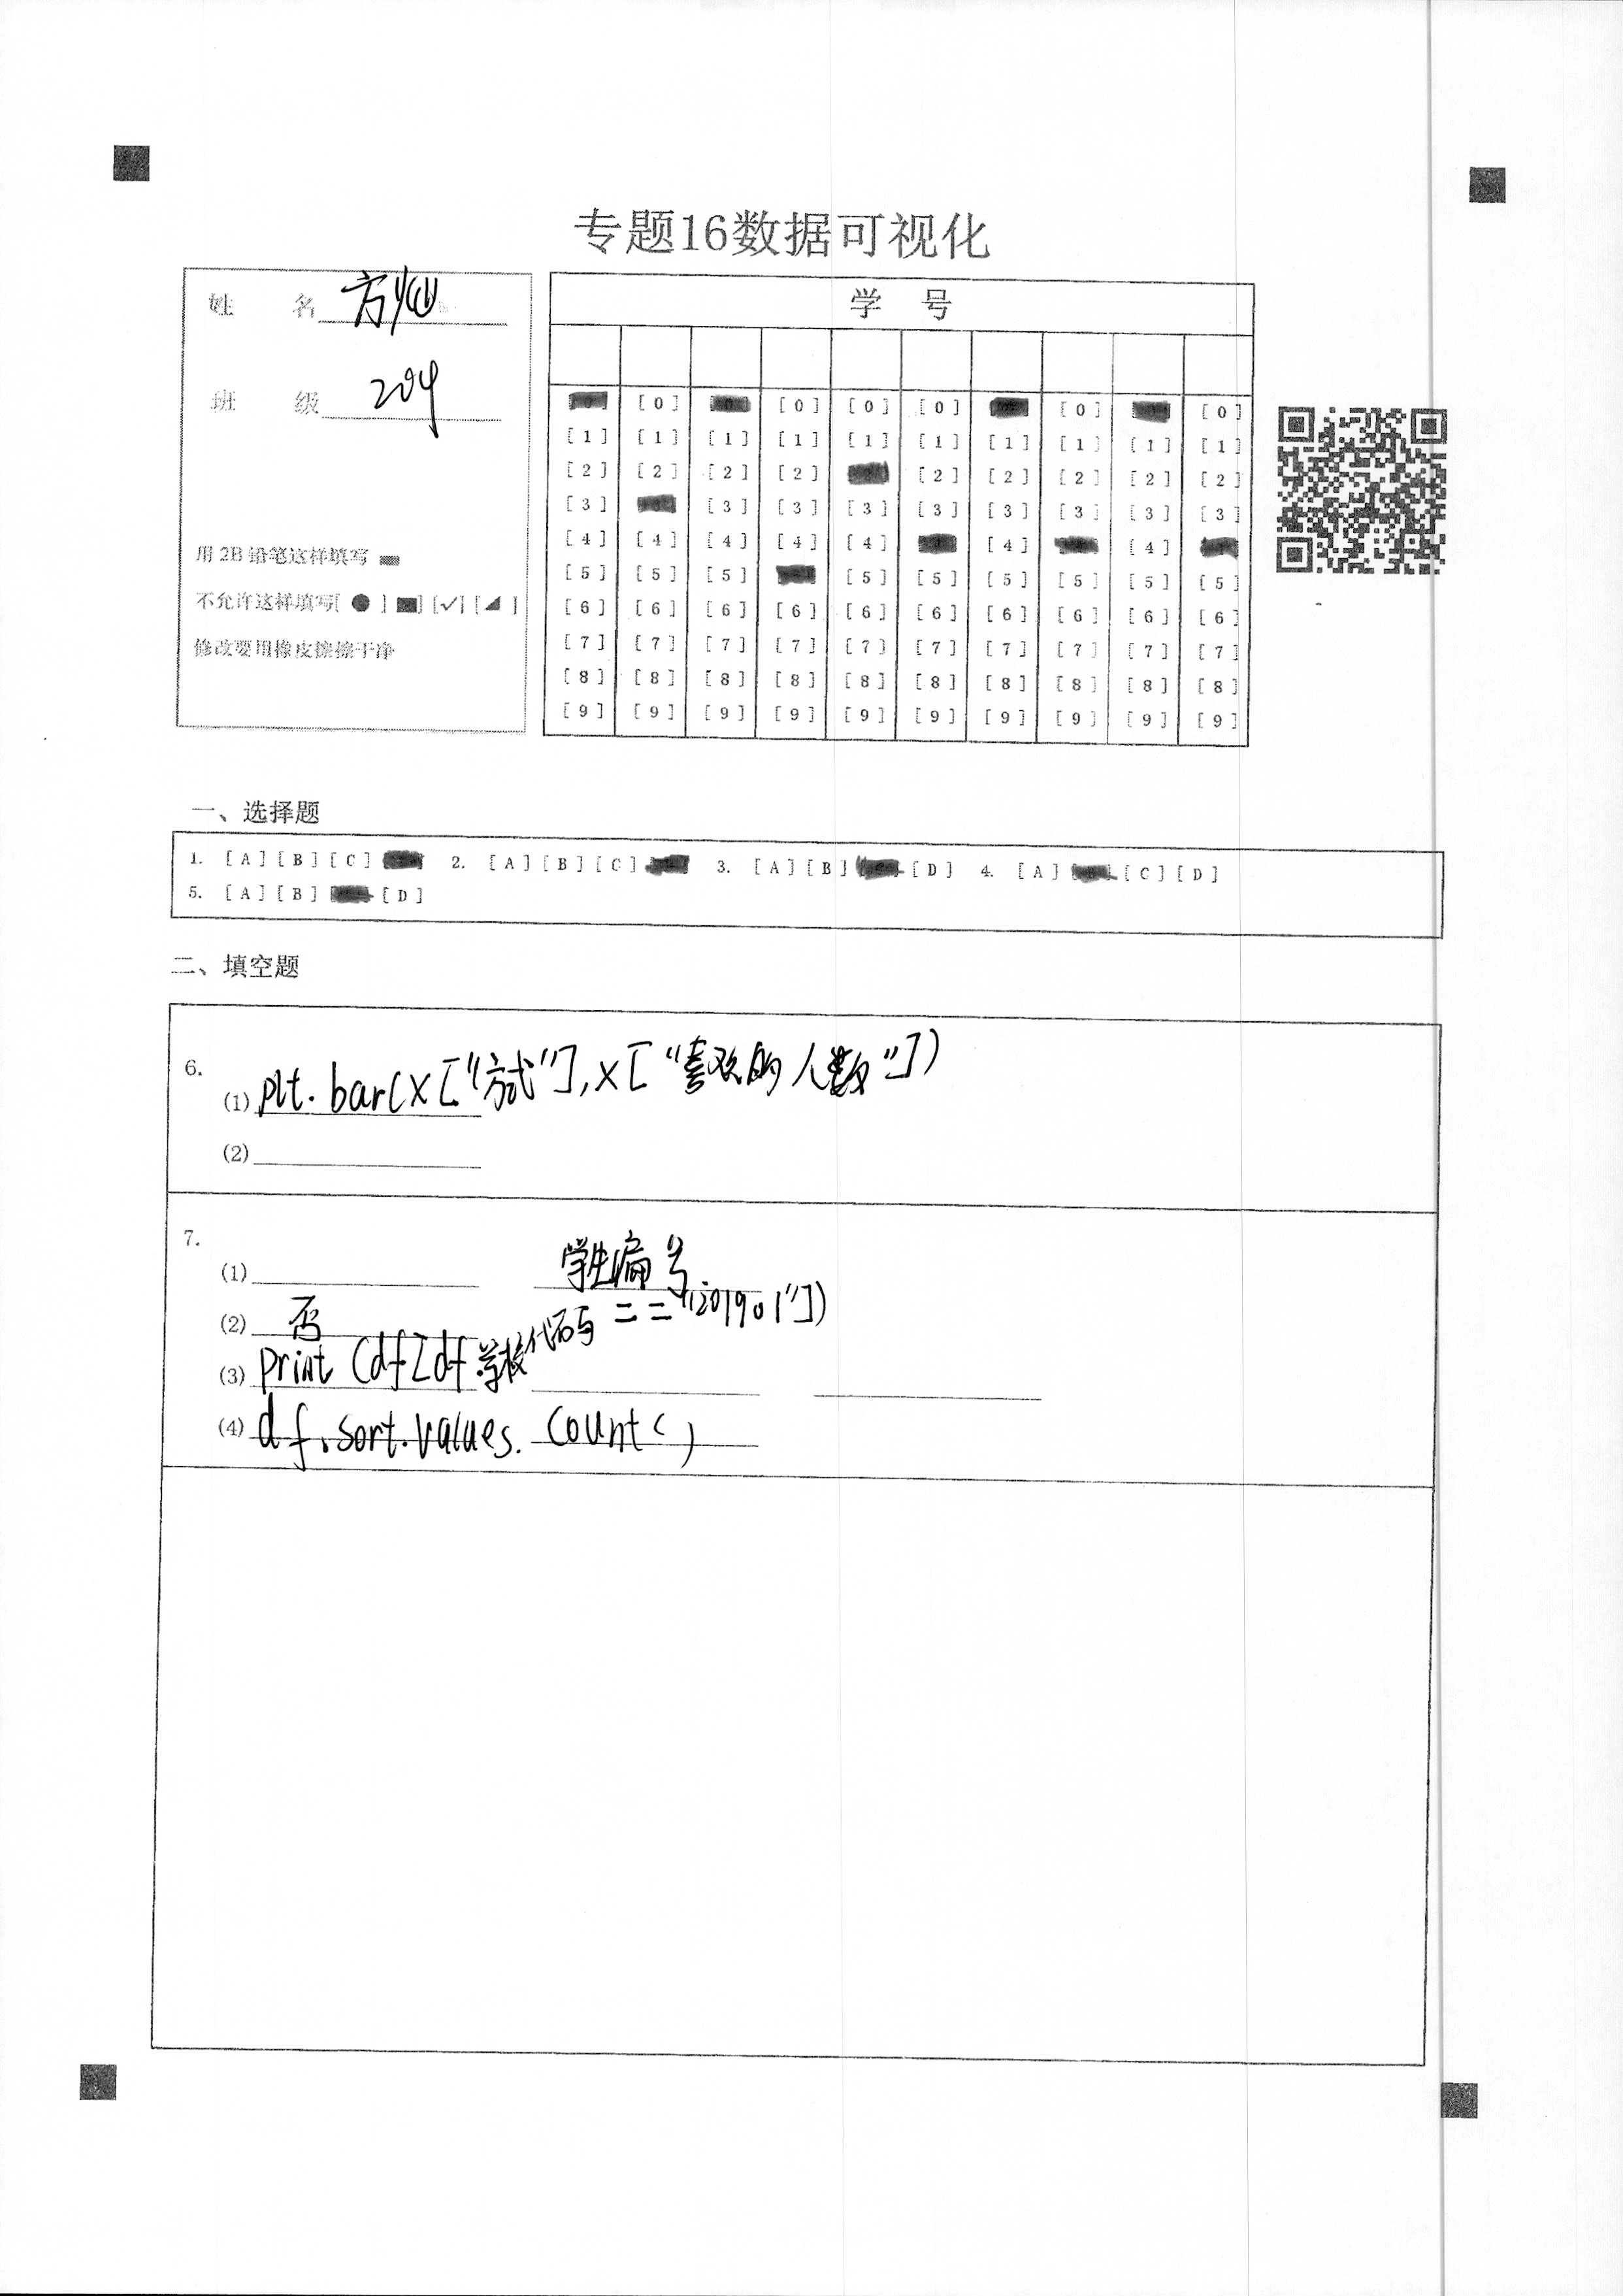 专题16数据可视化
姓 名 方
班 级 204
用 2B 铅笔这样填写
不允许这样填写[ ● ] ■] [✓] [◢ ]
修改要用橡皮擦擦干净
学 号
[0] [0] [0] [0] [0] [0]
[1] [1] [1] [1] [1] [1] [1] [1] [1] [1]
[2] [2] [2] [2] [2] [2] [2] [2] [2]
[3] [3] [3] [3] [3] [3] [3] [3] [3]
[4] [4] [4] [4] [4] [4] [4]
[5] [5] [5] [5] [5] [5] [5] [5] [5]
[6] [6] [6] [6] [6] [6] [6] [6] [6] [6]
[7] [7] [7] [7] [7] [7] [7] [7] [7] [7]
[8] [8] [8] [8] [8] [8] [8] [8] [8] [8]
[9] [9] [9] [9] [9] [9] [9] [9] [9] [9]
一、选择题
1. [A] [B] [C] 2. [A] [B] [C] 3. [A] [B] [D] 4. [A] [C] [D]
5. [A] [B] [D]
二、填空题
6.
(1) plt.bar(x["方式"],x["喜欢的人数"])
(2)
7.
(1) 学生编号
(2) 否
(3) print(df[df.学校代码=="201901"])
(4) df.sort.values.count()